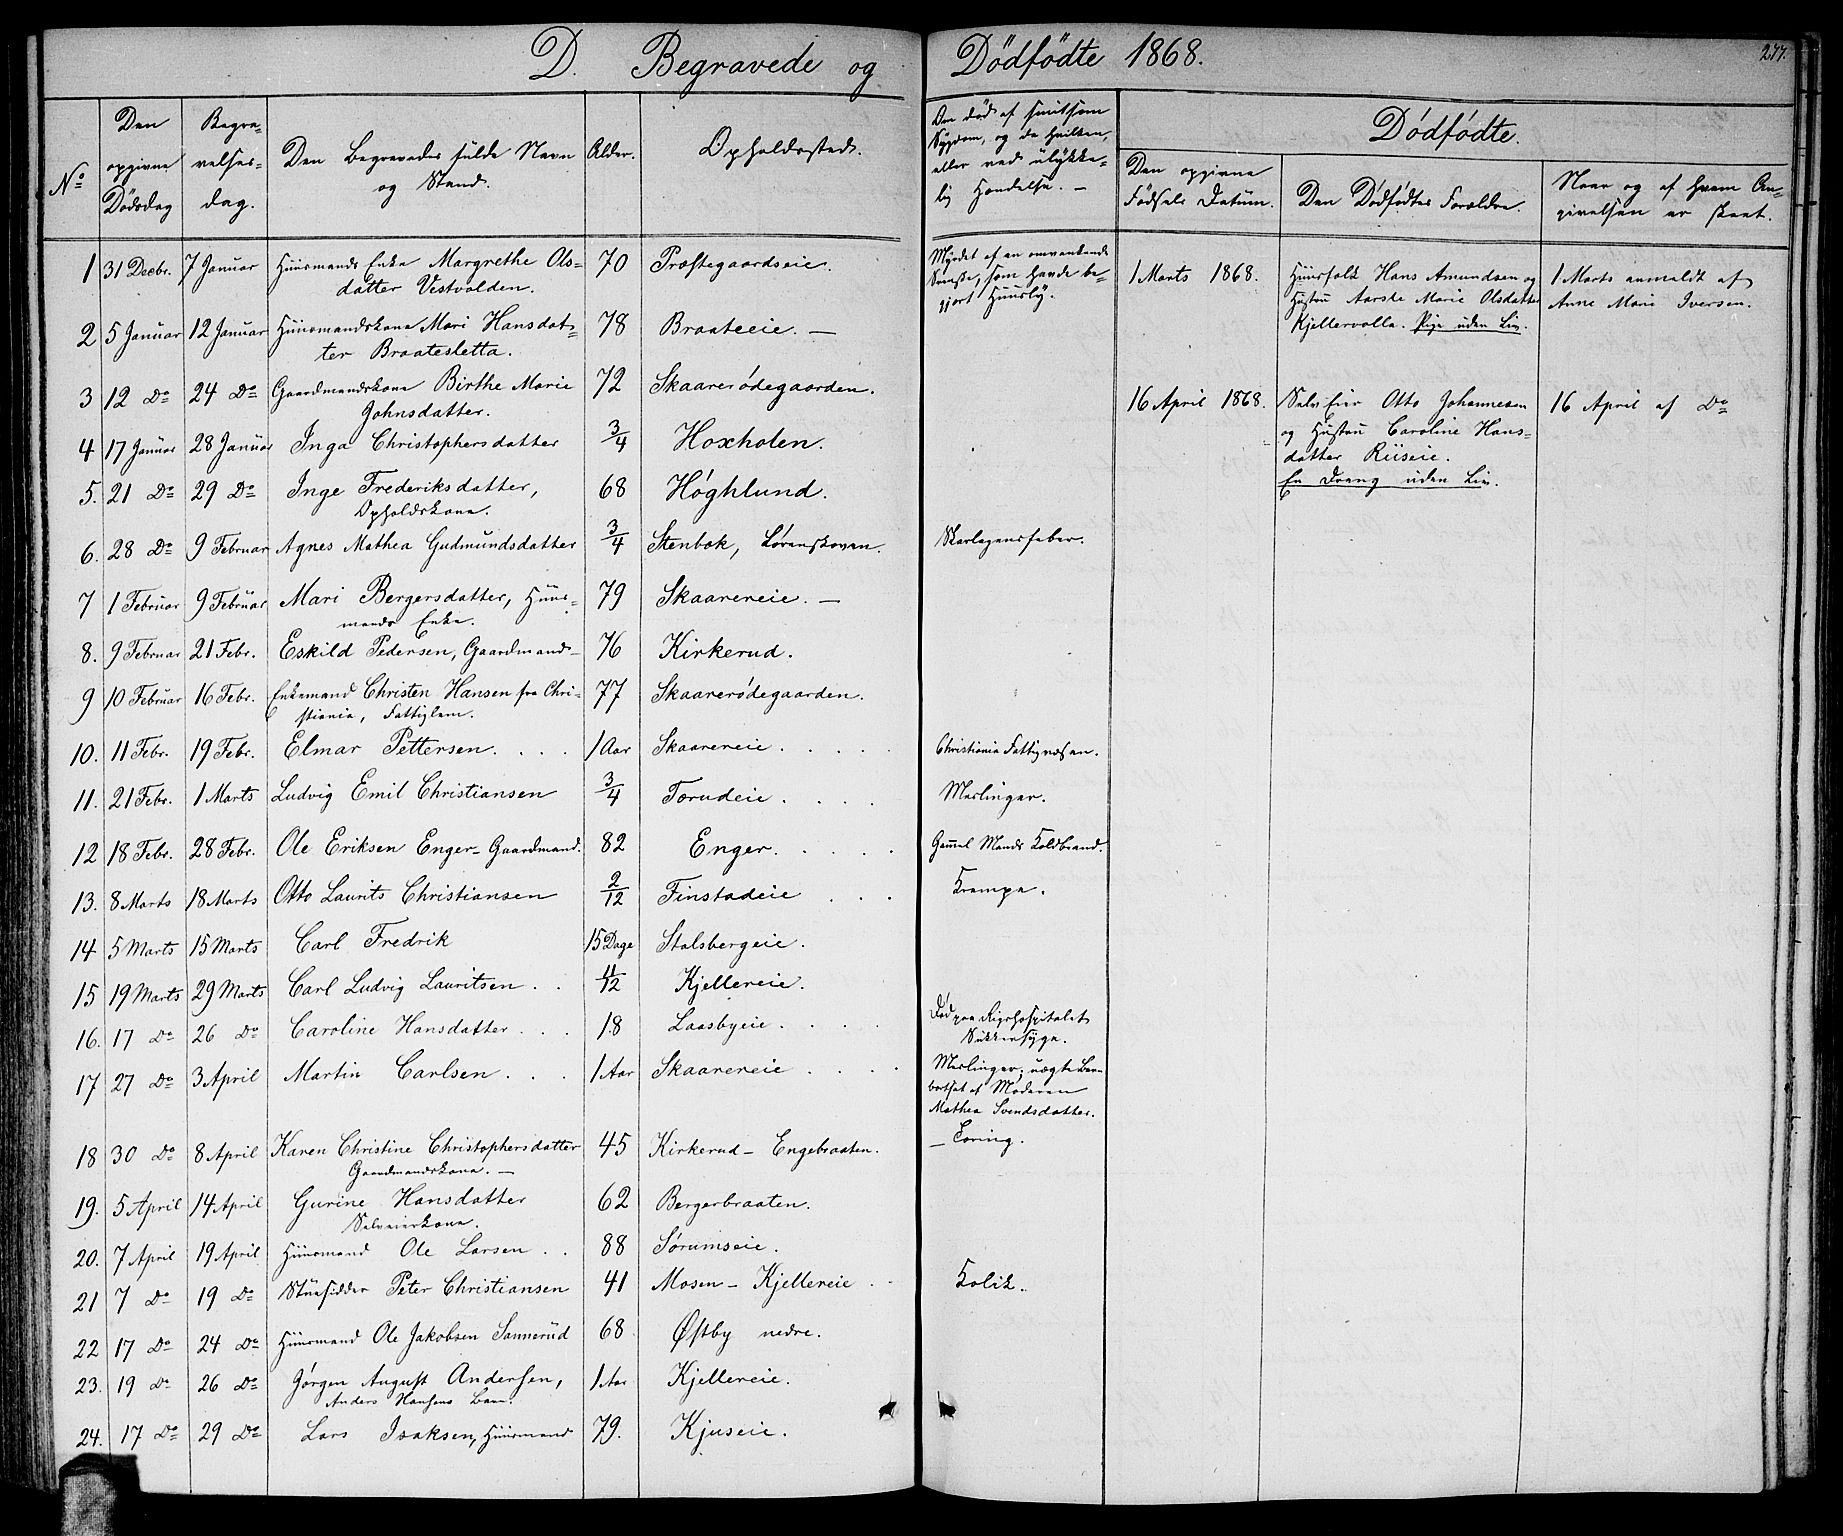 D. Begravede og Dödfödte 1868.
277.
No
Den opgivne Dødsdag
Begravelsesdag.
Den Begravedes fulde Navn og Stand.
Alder.
Opholdssted.
Om død af smitsom Sygdom, og da hvilken, eller ved ulykkelig Hændelse. —
Dódfódte.
Den opgivne Fødsels Datum.
Den Dódfódtes Forældre.
Naar og af hvem Angivelsen er skeet.
1 31 Decbr. 7 Januar Huusmands Enke Margrethe Ols= 70 Præstegaardseie.
datter Vestvolden.
Myrdet af en omvankende
Svenske, som havde be=
gjert Huusly.
1 Marts 1868. Huusfolk Hans Amundsen og 1 Marts anmeldt af
Hustru Aarste Marie Olsdatter Anne Marie Iversen.
Kjellervolla. Pige uden Liv.
2 5 Januar 12 Januar Huusmandskone Mari Hansdat= 78 Braateeie. —
ter Braatesletta.
3 12 Do 24 Do Gaardmandskone Birthe Marie 72 Skaarerødegaarden.
Johnsdatter.
16 April 1868. Selveier Otto Johannesen 16 April af Do
og Hustru Caroline Hans=
datter Riiseie.
En Dreng uden Liv.
4 17 Januar 28 Januar Inga Christophersdatter 3/4 Hoxholen.
5. 21 Do 29 Do Inge Frederiksdatter, 68 Høghlund.
Opholdskone.
6. 28 Do 9 Februar Agnes Mathea Gudmundsdatter 3/4 Stenbok, Lørenskoven. Skarlagensfeber.
7 1 Februar 9 Februar Mari Bergersdatter, Huus= 79 Skaarereie. —
mands Enke.
8. 9 Februar 21 Febr. Eskild Pedersen, Gaardmand— 76 Kirkerud.
9 10 Februar 16 Febr. Enkemand Christen Hansen fra Chri= 77 Skaarerødegaarden.
stiania, Fattiglem.
10. 11 Febr. 19 Febr. Elmar Pettersen. . . . 1 Aar Skaarereie . . . . Christiania Fattigvæsen.
11. 21 Febr. 1 Marts Ludvig Emil Christiansen 3/4 Torudeie . . . . Meslinger.
12 18 Febr. 28 Febr. Ole Eriksen Enger- Gaardmand. 82 Enger. . . . . Gammel Mands Koldbrand.
13. 8 Marts 18 Marts Otto Laurits Christiansen 2/12 Finstadeie . . . Krampe.
14 5 Marts 15 Marts Carl Fredrik 15 Dage Stalsbergeie.
15 19 Marts 29 Marts Carl Ludvig Lauritsen . . 11/12 Kjellereie.
16. 17 Do 26 Do Caroline Hansdatter . . . 18 Laasbyeie . . . . Død paa Rigshospitalet
Sukkersyge.
17 27 Do 3 April Martin Carlsen . . . 1 Aar Skaarereie . . . . Meslinger; uægte Barn
Moderen
Mathea Svendsdatter.
18 30 Do 8 April Karen Christine Christophersdatter 45 Kirkerud- Engebraaten. — Tæring.
Gaardmandskone. —
19. 5 April 14 April Gurine Hansdatter 62 Bergerbraaten.
Selveierkone.
20. 7 April 19 April Huusmand Ole Larsen . . 88 Sørumseie.
21 7 Do 19 Do Stuesidder Peter Christiansen 41 Mosen- Kjellereie . . Kolik.
22 17 Do 24 Do Huusmand Ole Jakobsen Sannerud 68 Østby nedre.
23. 19 Do 26 Do Jørgen August Andersen, 1 Aar Kjellereie.
Anders Hansens Barn.
24. 17 Do 29 Do Lars Isaksen, Huusmand 79. Kjuseie.